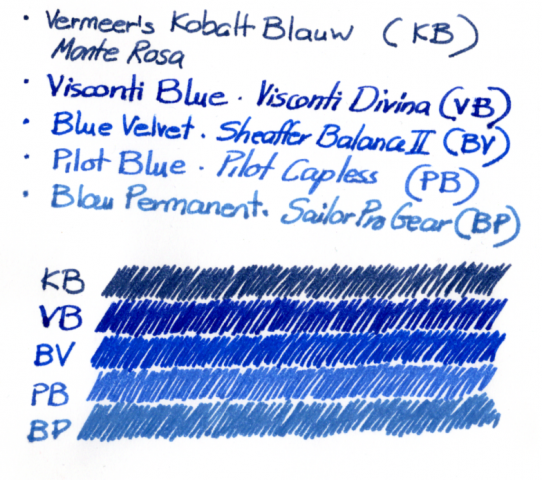 · Vermeer's Kobalt Blauw (KB)
Monte Rosa
· Visconti Blue · Visconti Divina (VB)
· Blue Velvet · Sheaffer Balance II (BV)
· Pilot Blue · Pilot Capless (PB)
· Blau Permanent · Sailor Pro Gear (BP)
KB
VB
BV
PB
BP